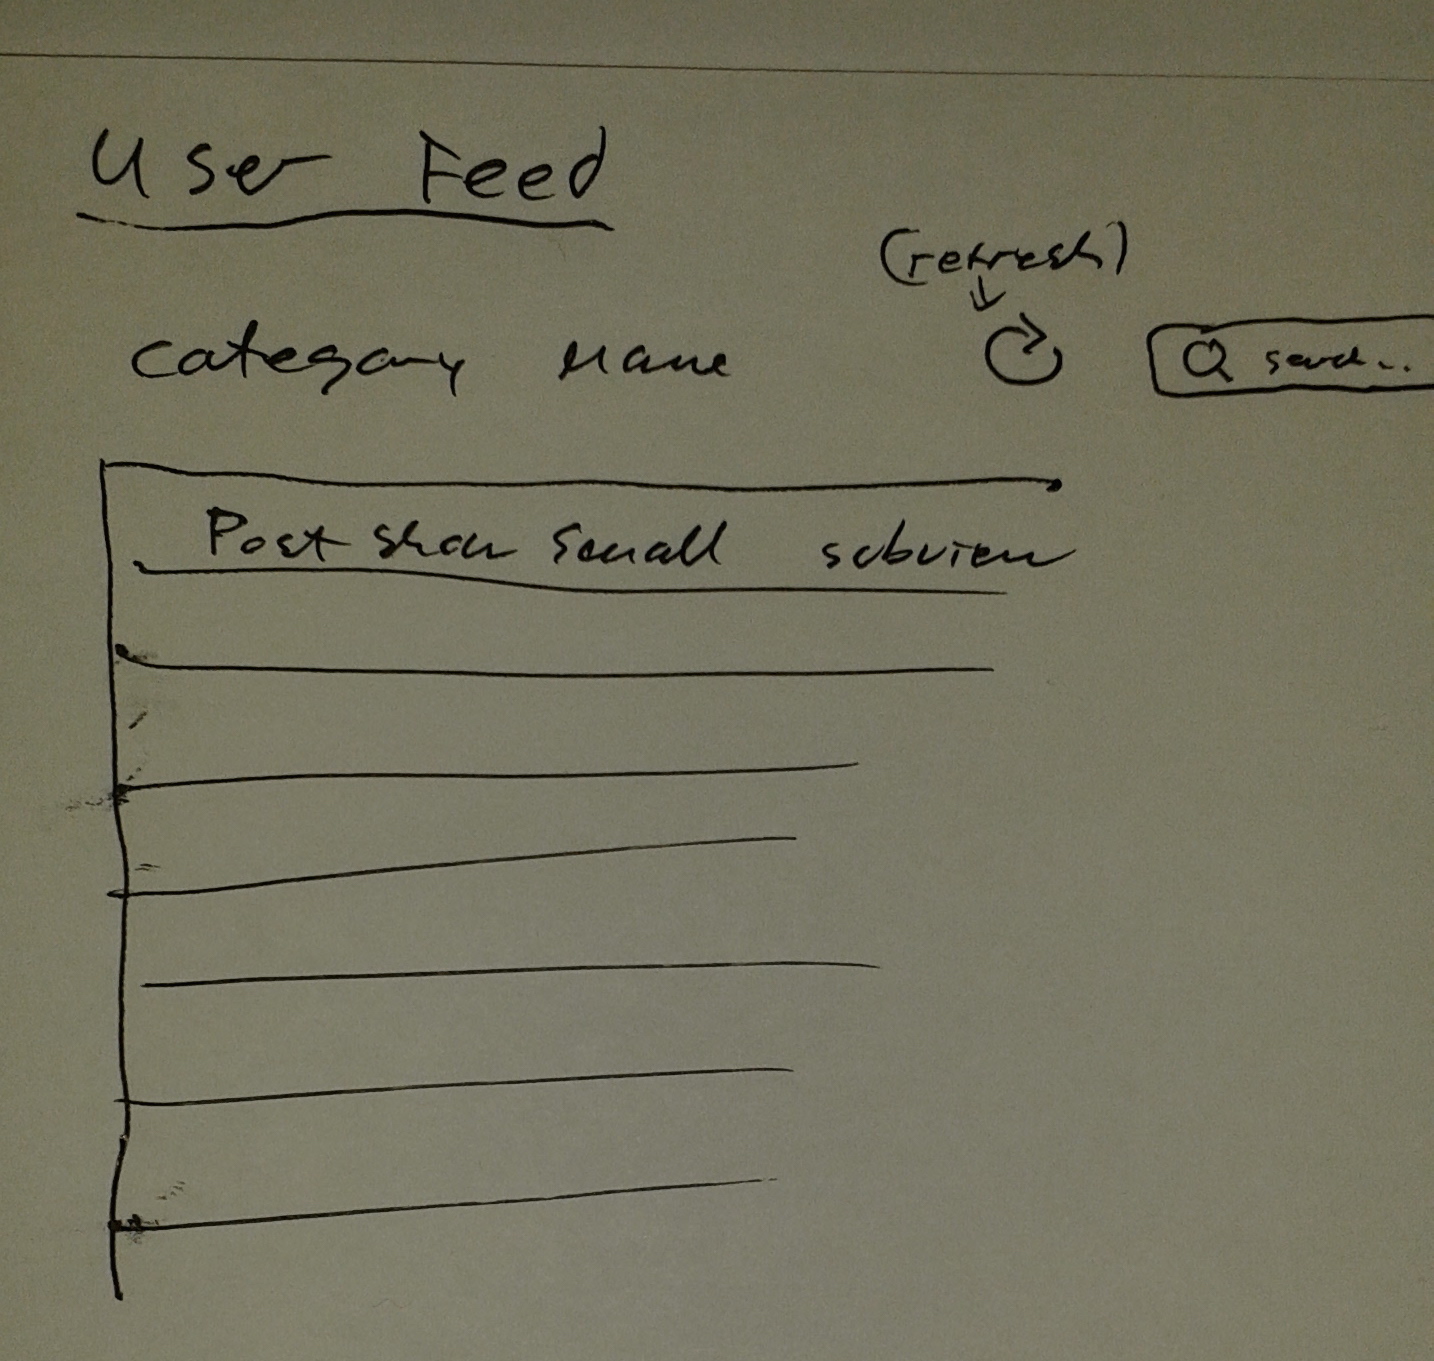 User Feed
(refresh)
category name
search...
Post show small subview